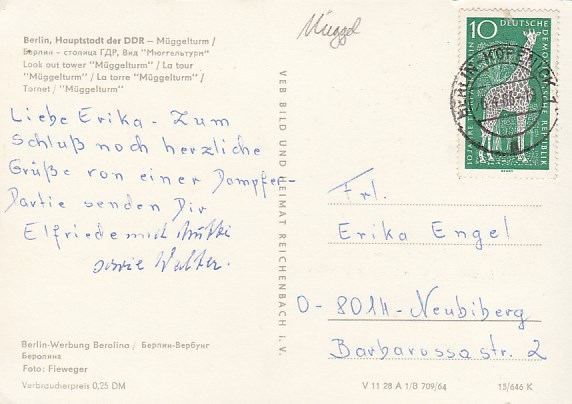 Berlin, Hauptstadt der DDR — Müggelturm /
Берлин - столица ГДР, Вид "Мюггельтурм"
Look out tower "Müggelturm" / La tour
"Müggelturm" / La torre "Müggelturm" /
Tornet / "Müggelturm"
Müggel
10 DEUTSCHE DEMOKRATISCHE REPUBLIK
10 JAHRE TIERPARK BERLIN
BERLIN-KÖPENICK 1
Liebe Erika - Zum
Schluß noch herzliche
Grüße von einer Dampfer-
Partie senden Dir
Elfriede und Mutti
sowie Walter.
VEB BILD UND HEIMAT REICHENBACH i. V.
Frl.
Erika Engel
D-8014-Neubiberg
Barbarossastr. 2
Berlin-Werbung Berolina / Берлин-Вербунг
Беролина
Foto: Fieweger
Verbraucherpreis 0,25 DM
V 11 28 A 1/B 709/64
15/646 K